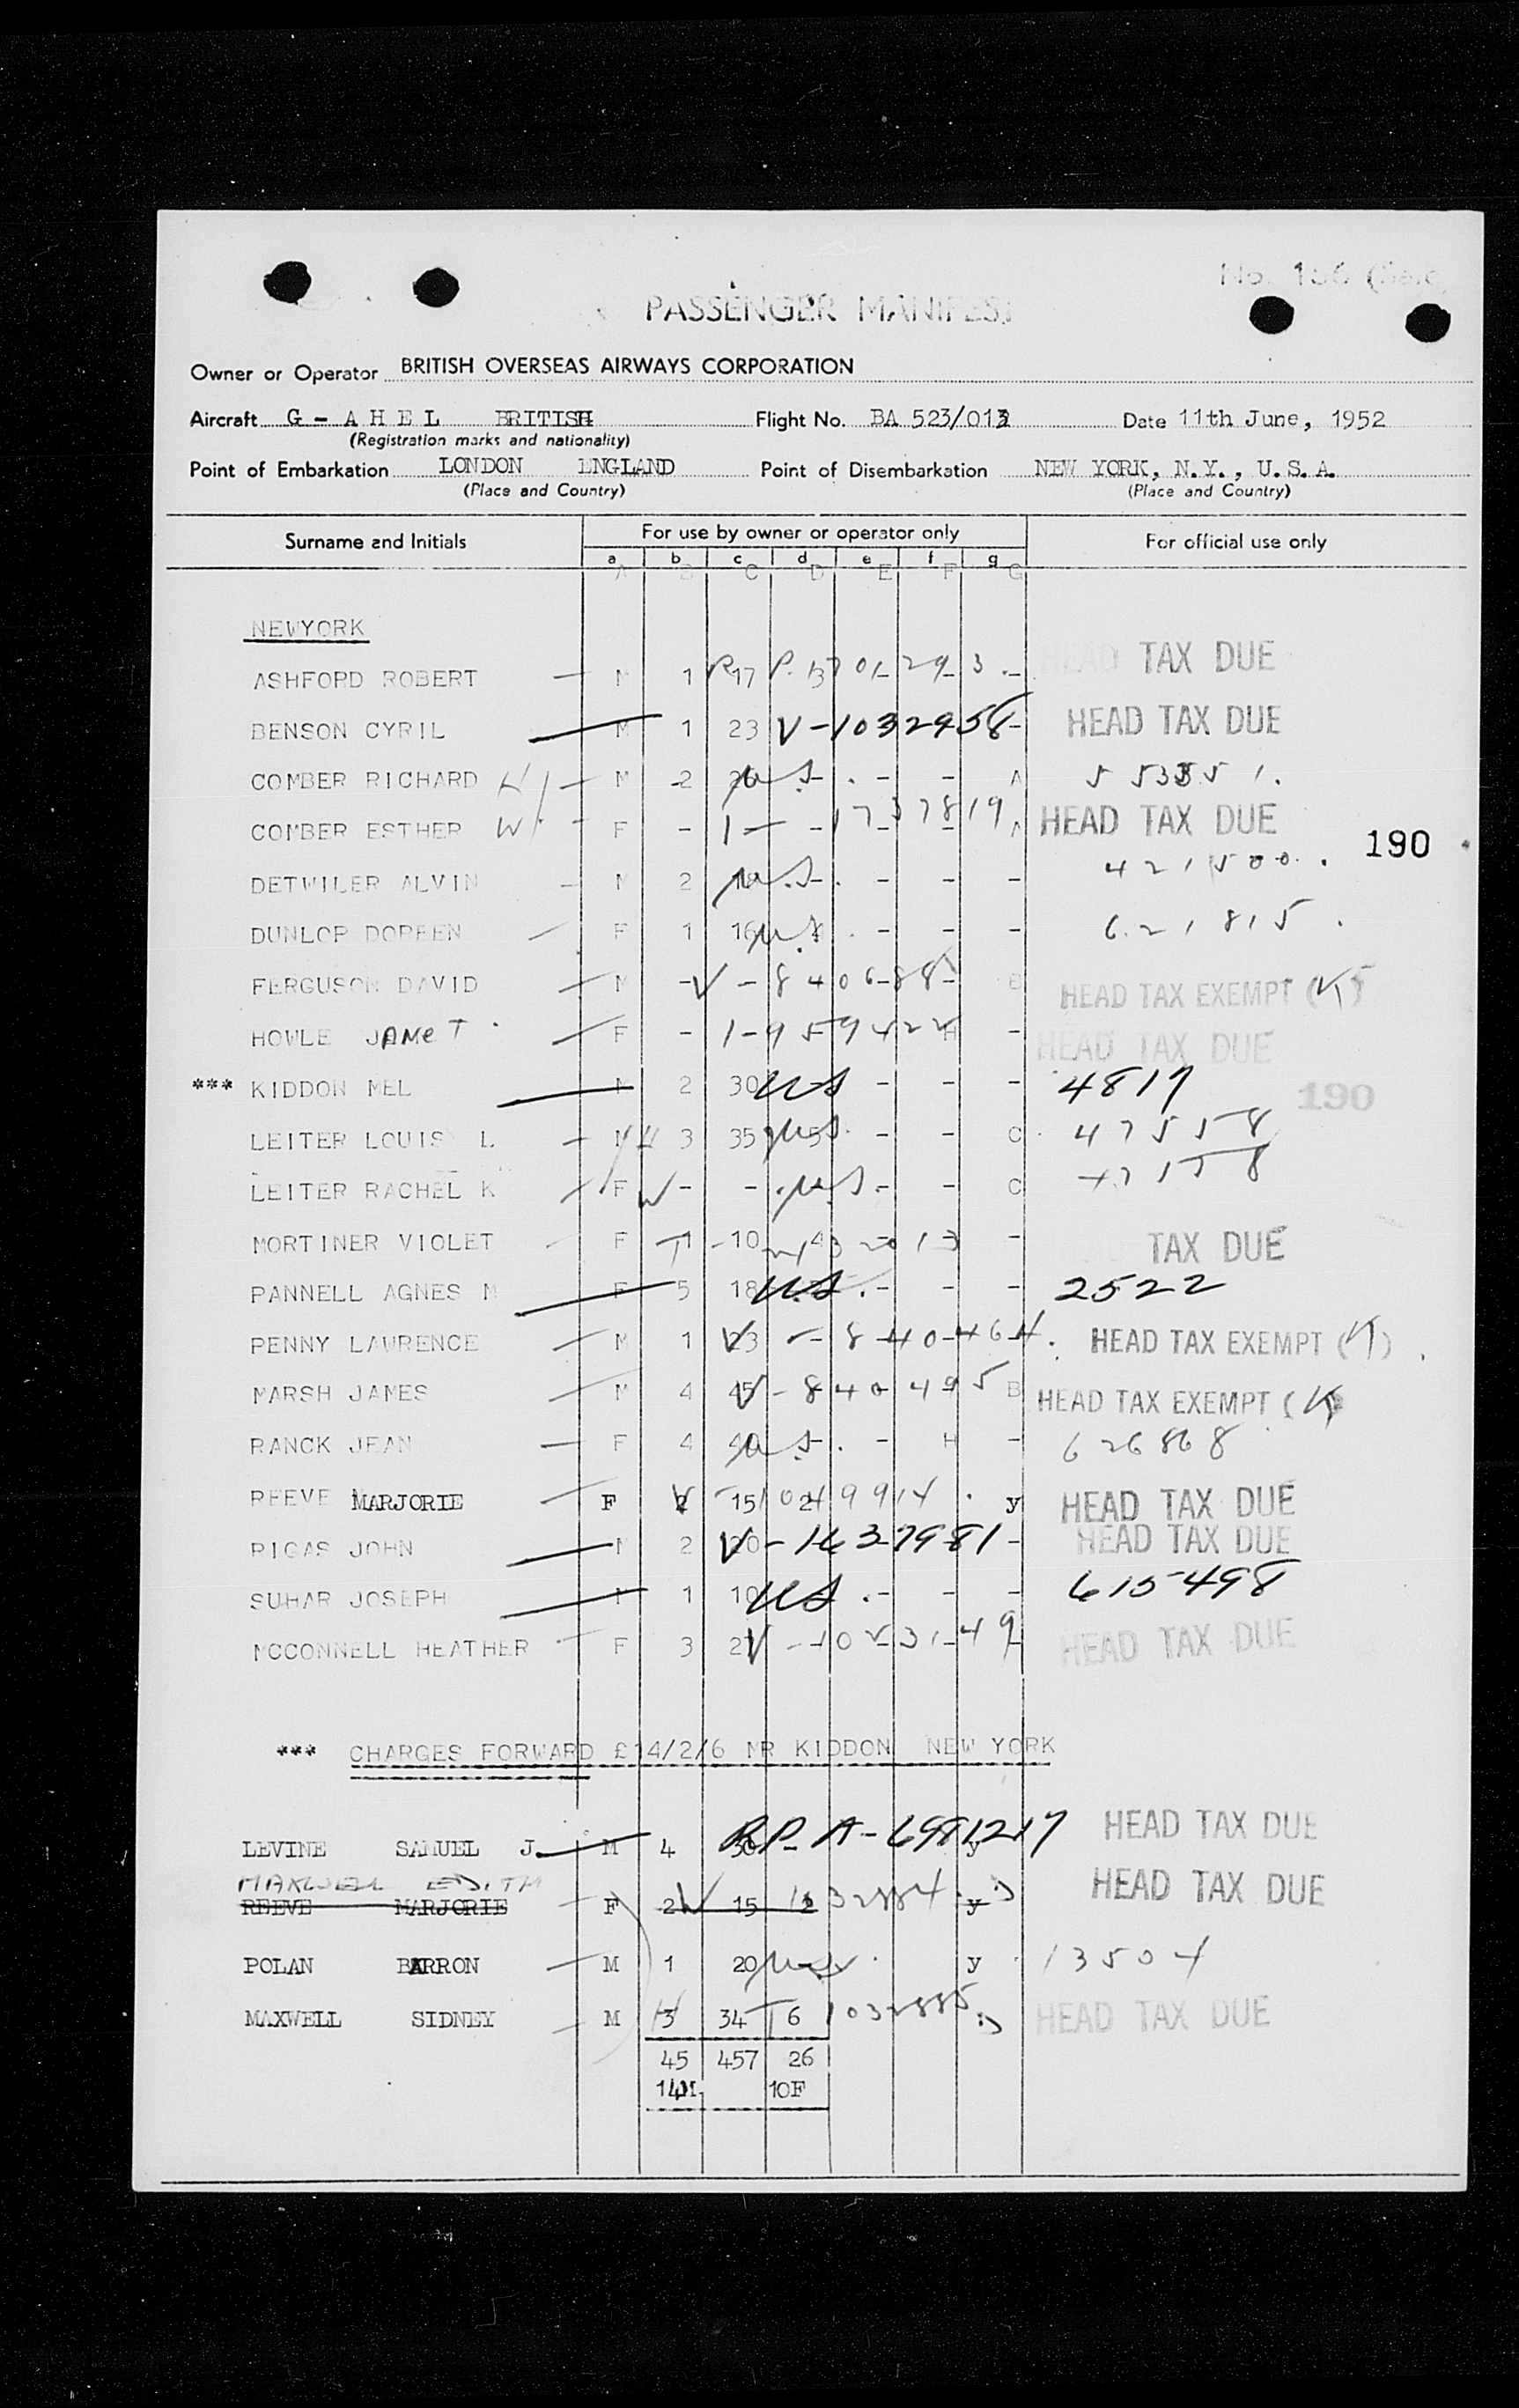 No. 186
PASSENGER MANIFEST
Owner or Operator BRITISH OVERSEAS AIRWAYS CORPORATION
Aircraft G - A H E L BRITISH Flight No. BA 523/012 Date 11th June, 1952
(Registration marks and nationality)
Point of Embarkation LONDON ENGLAND Point of Disembarkation NEW YORK, N.Y., U.S.A.
(Place and Country) (Place and Country)
Surname and Initials For use by owner or operator only For official use only
a b c d e f g
A B C D E F G
NEWYORK
ASHFORD ROBERT — M 1 17 HEAD TAX DUE
BENSON CYRIL — M 1 23 V-1032958 HEAD TAX DUE
COMBER RICHARD H — M 2 26 US - - A
COMBER ESTHER W F - 1-1737819 A HEAD TAX DUE
190
DETWILER ALVIN - M 2 US - - - 421500
DUNLOP DOREEN — F 1 16 US - - - 621815
FERGUSON DAVID — M - V-840688 B HEAD TAX EXEMPT (K)
HOWLE JANET — F - 1-959422 H - HEAD TAX DUE
*** KIDDON MEL — M 2 30 US - - - 4817
190
LEITER LOUIS L — M H 3 35 US - - C 47558
LEITER RACHEL K F W - - US - - C
MORTINER VIOLET F 1 10 4 - TAX DUE
PANNELL AGNES M — F 5 18 US - - - 2522
PENNY LAWRENCE — M 1 23 V-840464 HEAD TAX EXEMPT (K)
MARSH JAMES — M 4 45 V-840495 B HEAD TAX EXEMPT (K)
RANCK JEAN — F 4 40 US - H - 626868
REEVE MARJORIE — F 2 15 2 y HEAD TAX DUE
RIGAS JOHN — M 2 20 V-1637981 - HEAD TAX DUE
SUHAR JOSEPH — M 1 10 US - - - 615498
MCCONNELL HEATHER F 3 V-1053149 HEAD TAX DUE
*** CHARGES FORWARD £14/2/6 MR KIDDON NEW YORK
LEVINE SAMUEL J. — M 4 30 - y HEAD TAX DUE
MAXWELL EDITH
REEVE MARJORIE F 2 15 2 y HEAD TAX DUE
POLAN BARRON — M 1 20 US y 13504
MAXWELL SIDNEY — M H 3 34 T 6 1032885 HEAD TAX DUE
45 457 26
14M 10F